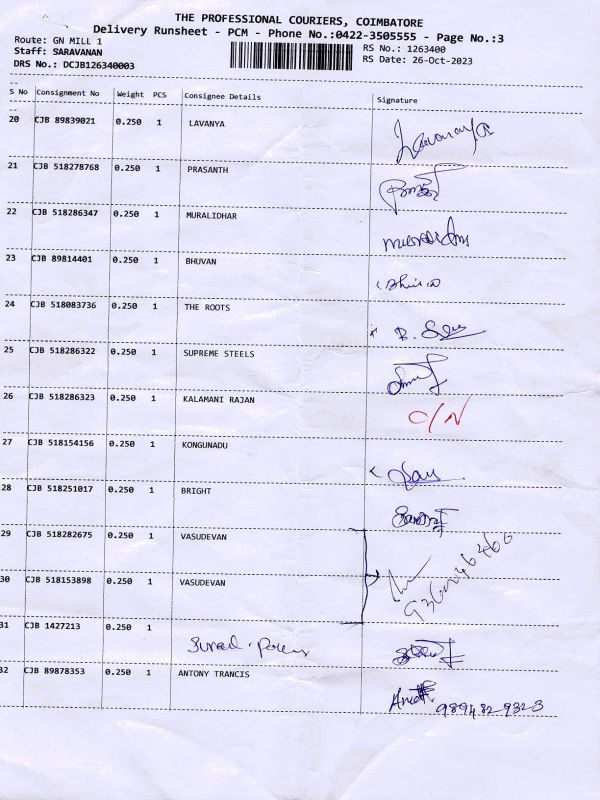 THE PROFESSIONAL COURIERS, COIMBATORE
Delivery Runsheet - PCM - Phone No.:0422-3505555 - Page No.:3
Route: GN MILL 1
RS No.: 1263400
Staff: SARAVANAN
RS Date: 26-Oct-2023
DRS No.: DCJB126340003
S No Consignment No Weight PCS Consignee Details Signature
20 CJB 89839021 0.250 1 LAVANYA Lavanya
21 CJB 518278768 0.250 1 PRASANTH
22 CJB 518286347 0.250 1 MURALIDHAR
23 CJB 89814401 0.250 1 BHUVAN
24 CJB 518083736 0.250 1 THE ROOTS
25 CJB 518286322 0.250 1 SUPREME STEELS
26 CJB 518286323 0.250 1 KALAMANI RAJAN C/N
27 CJB 518154156 0.250 1 KONGUNADU
28 CJB 518251017 0.250 1 BRIGHT
29 CJB 518282675 0.250 1 VASUDEVAN
30 CJB 518153898 0.250 1 VASUDEVAN
31 CJB 1427213 0.250 1
32 CJB 89878353 0.250 1 ANTONY TRANCIS 9894829323